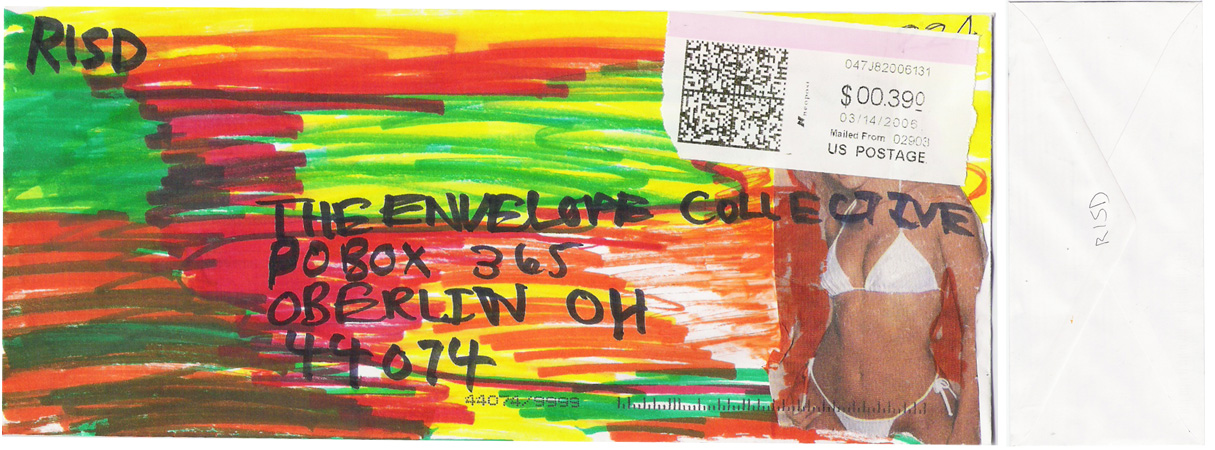 RISD
047J82006131
$00.390
03/14/2006
Mailed From 02903
US POSTAGE
neopost
THE ENVELOPE COLLECTIVE
PO BOX 365
OBERLIN OH
44074
44074/9999
RISD